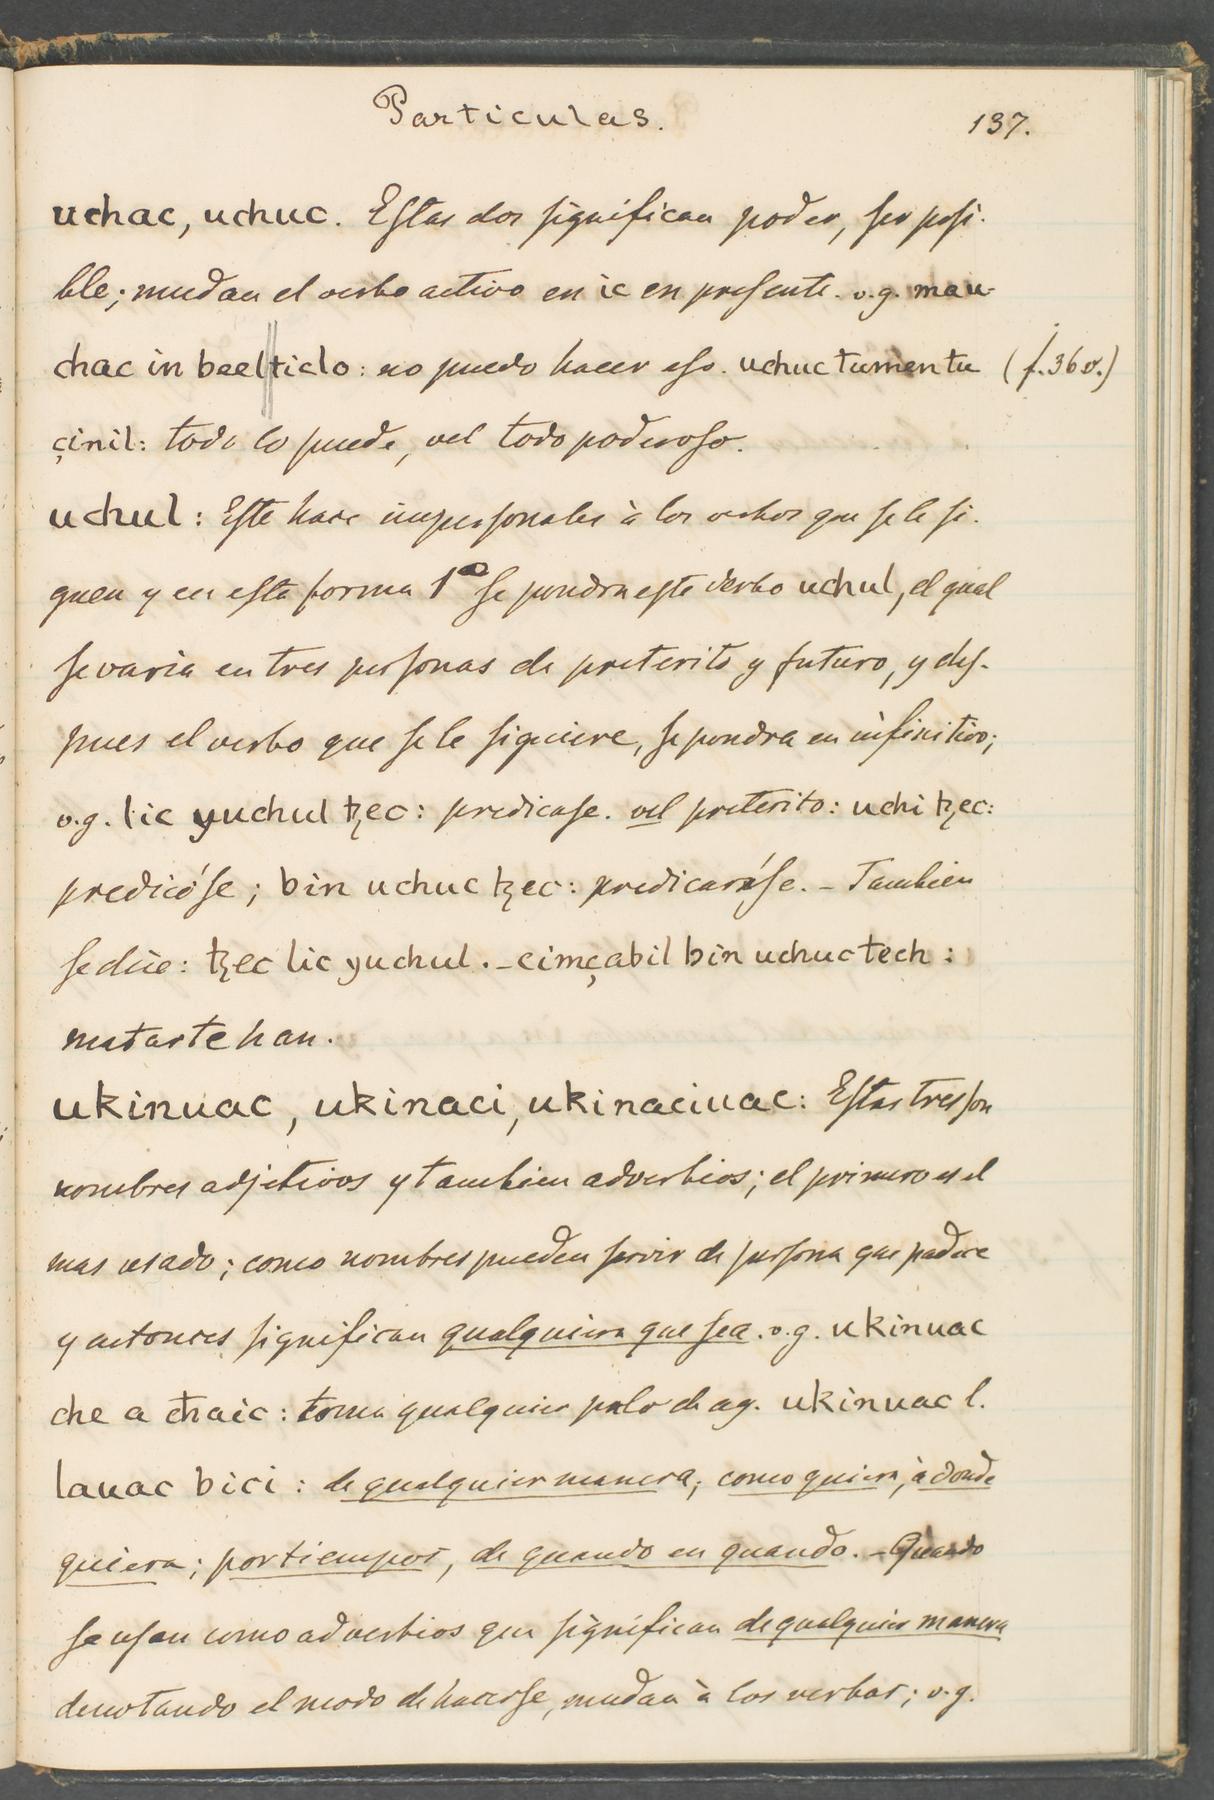 Particulas.
137.
uchac, uchuc. Estas dos significan poder, ser posi-
ble; mudan el verbo activo en ic en presente. v.g. mau-
chac in beelticlo: no puedo hacer eso. uchuc tumentu (f. 36 v.)
çinil: todo lo puede, vel todo poderoso.
uchul: Este hace impersonales à los verbos que se le si-
guen y en esta forma 1º se pondra este verbo uchul, el qual
se varia en tres personas de preterito y futuro, y des-
pues el verbo que se le siguiere, se pondra en infinitivo;
v.g. lic yuchul tzec: predicase. vel preterito: uchi tzec:
predicóse; bin uchuc tzec: predicaráse. - Tambien
se dice: tzec lic yuchul. - cimçabil bin uchuc tech:
matarte han.
ukinuac, ukinaci, ukinaciuac: Estas tres son
nombres adjetivos y tambien adverbios; el primero es el
mas usado; como nombres pueden servir de persona que padece
y entonces significan qualquiera que sea. v.g. ukinuac
che a chaic: toma qualquier palo de ay. ukinuac l.
lauac bici: de qualquier manera; como quiera, à donde
quiera; por tiempos, de quando en quando. - Quando
se usan como adverbios que significan de qualquier manera
denotando el modo de hacerse, mudan à los verbos; v.g.